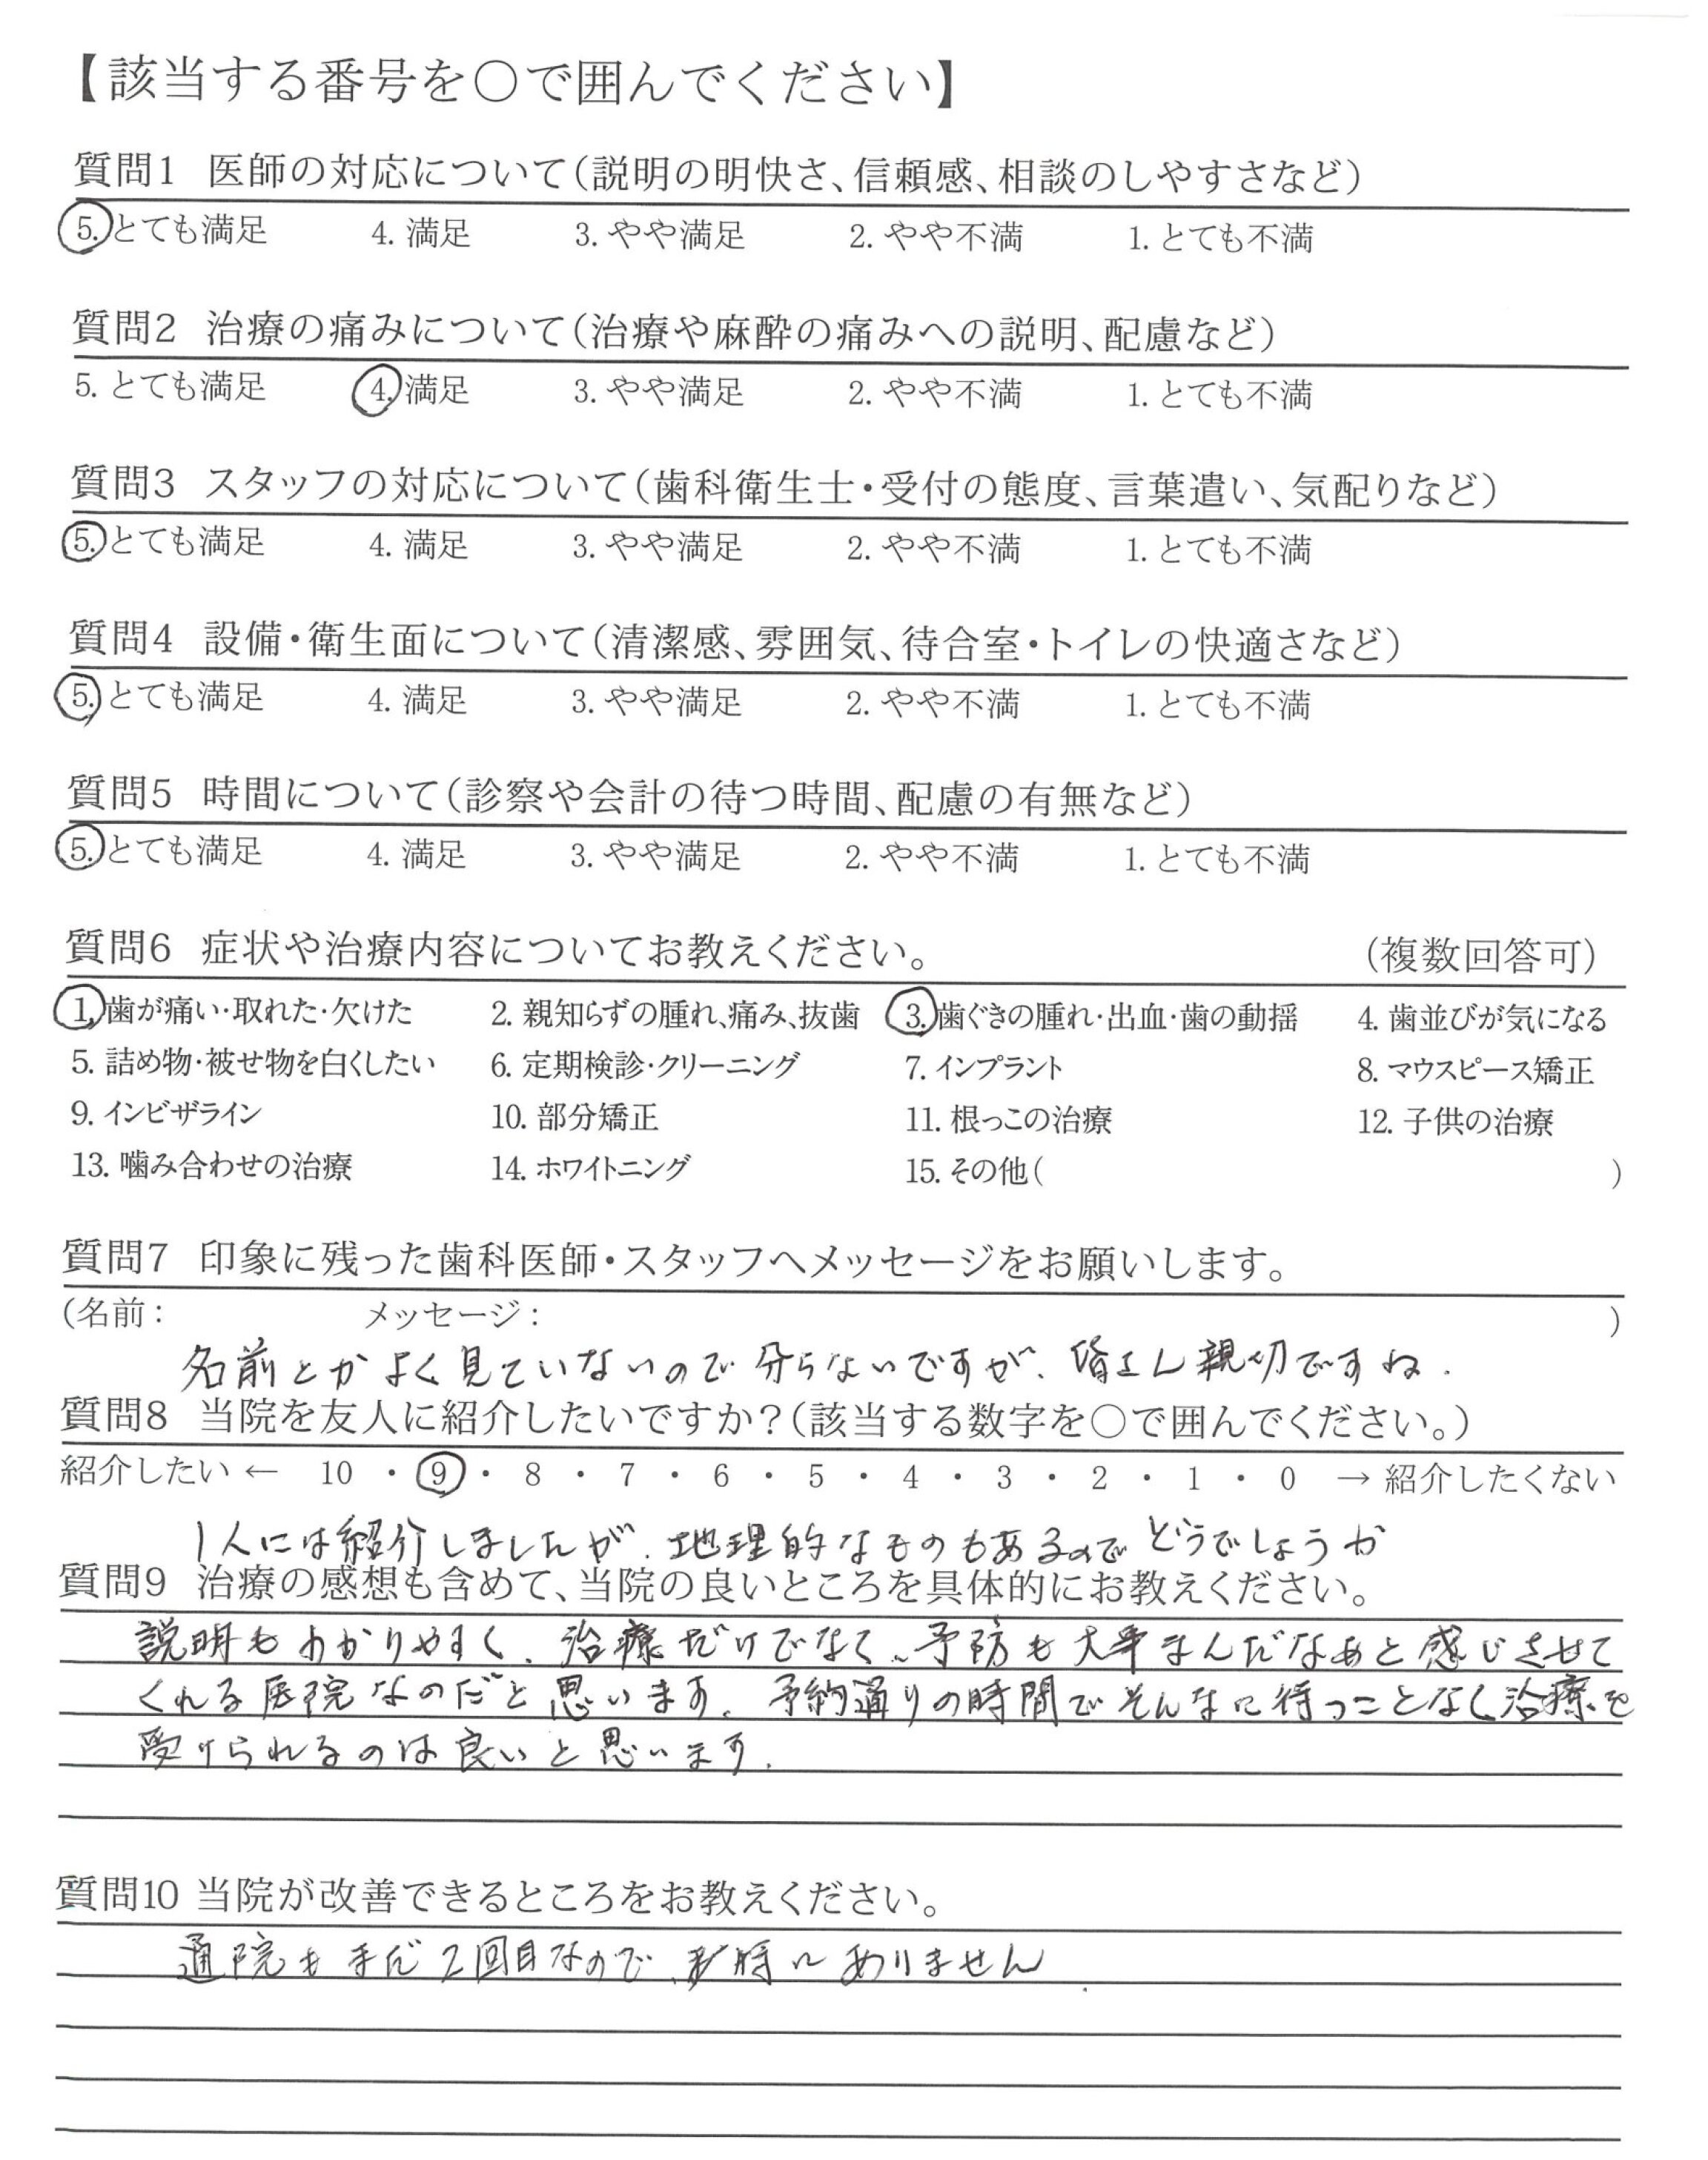 【該当する番号を○で囲んでください】
質問1 医師の対応について(説明の明快さ、信頼感、相談のしやすさなど)
5. とても満足 4. 満足 3. やや満足 2. やや不満 1. とても不満
質問2 治療の痛みについて(治療や麻酔の痛みへの説明、配慮など)
5. とても満足 4. 満足 3. やや満足 2. やや不満 1. とても不満
質問3 スタッフの対応について(歯科衛生士・受付の態度、言葉遣い、気配りなど)
5. とても満足 4. 満足 3. やや満足 2. やや不満 1. とても不満
質問4 設備・衛生面について(清潔感、雰囲気、待合室・トイレの快適さなど)
5. とても満足 4. 満足 3. やや満足 2. やや不満 1. とても不満
質問5 時間について(診察や会計の待つ時間、配慮の有無など)
5. とても満足 4. 満足 3. やや満足 2. やや不満 1. とても不満
質問6 症状や治療内容についてお教えください。 (複数回答可)
1. 歯が痛い・取れた・欠けた 2. 親知らずの腫れ、痛み、抜歯 3. 歯ぐきの腫れ・出血・歯の動揺 4. 歯並びが気になる
5. 詰め物・被せ物を白くしたい 6. 定期検診・クリーニング 7. インプラント 8. マウスピース矯正
9. インビザライン 10. 部分矯正 11. 根っこの治療 12. 子供の治療
13. 噛み合わせの治療 14. ホワイトニング 15. その他( )
質問7 印象に残った歯科医師・スタッフへメッセージをお願いします。
(名前: メッセージ: )
名前とかよく見ていないので分らないですが、皆さん親切ですね.
質問8 当院を友人に紹介したいですか?(該当する数字を○で囲んでください。)
紹介したい ← 10 ・ 9 ・ 8 ・ 7 ・ 6 ・ 5 ・ 4 ・ 3 ・ 2 ・ 1 ・ 0 → 紹介したくない
1人には紹介しましたが、地理的なものもあるのでどうでしょうか
質問9 治療の感想も含めて、当院の良いところを具体的にお教えください。
説明もわかりやすく、治療だけでなく、予防も大事なんだなあと感じさせて
くれる医院なのだと思います。予約通りの時間でそんなに待つことなく治療を
受けられるのは良いと思います.
質問10 当院が改善できるところをお教えください。
通院もまだ2回目なので、特にありません.